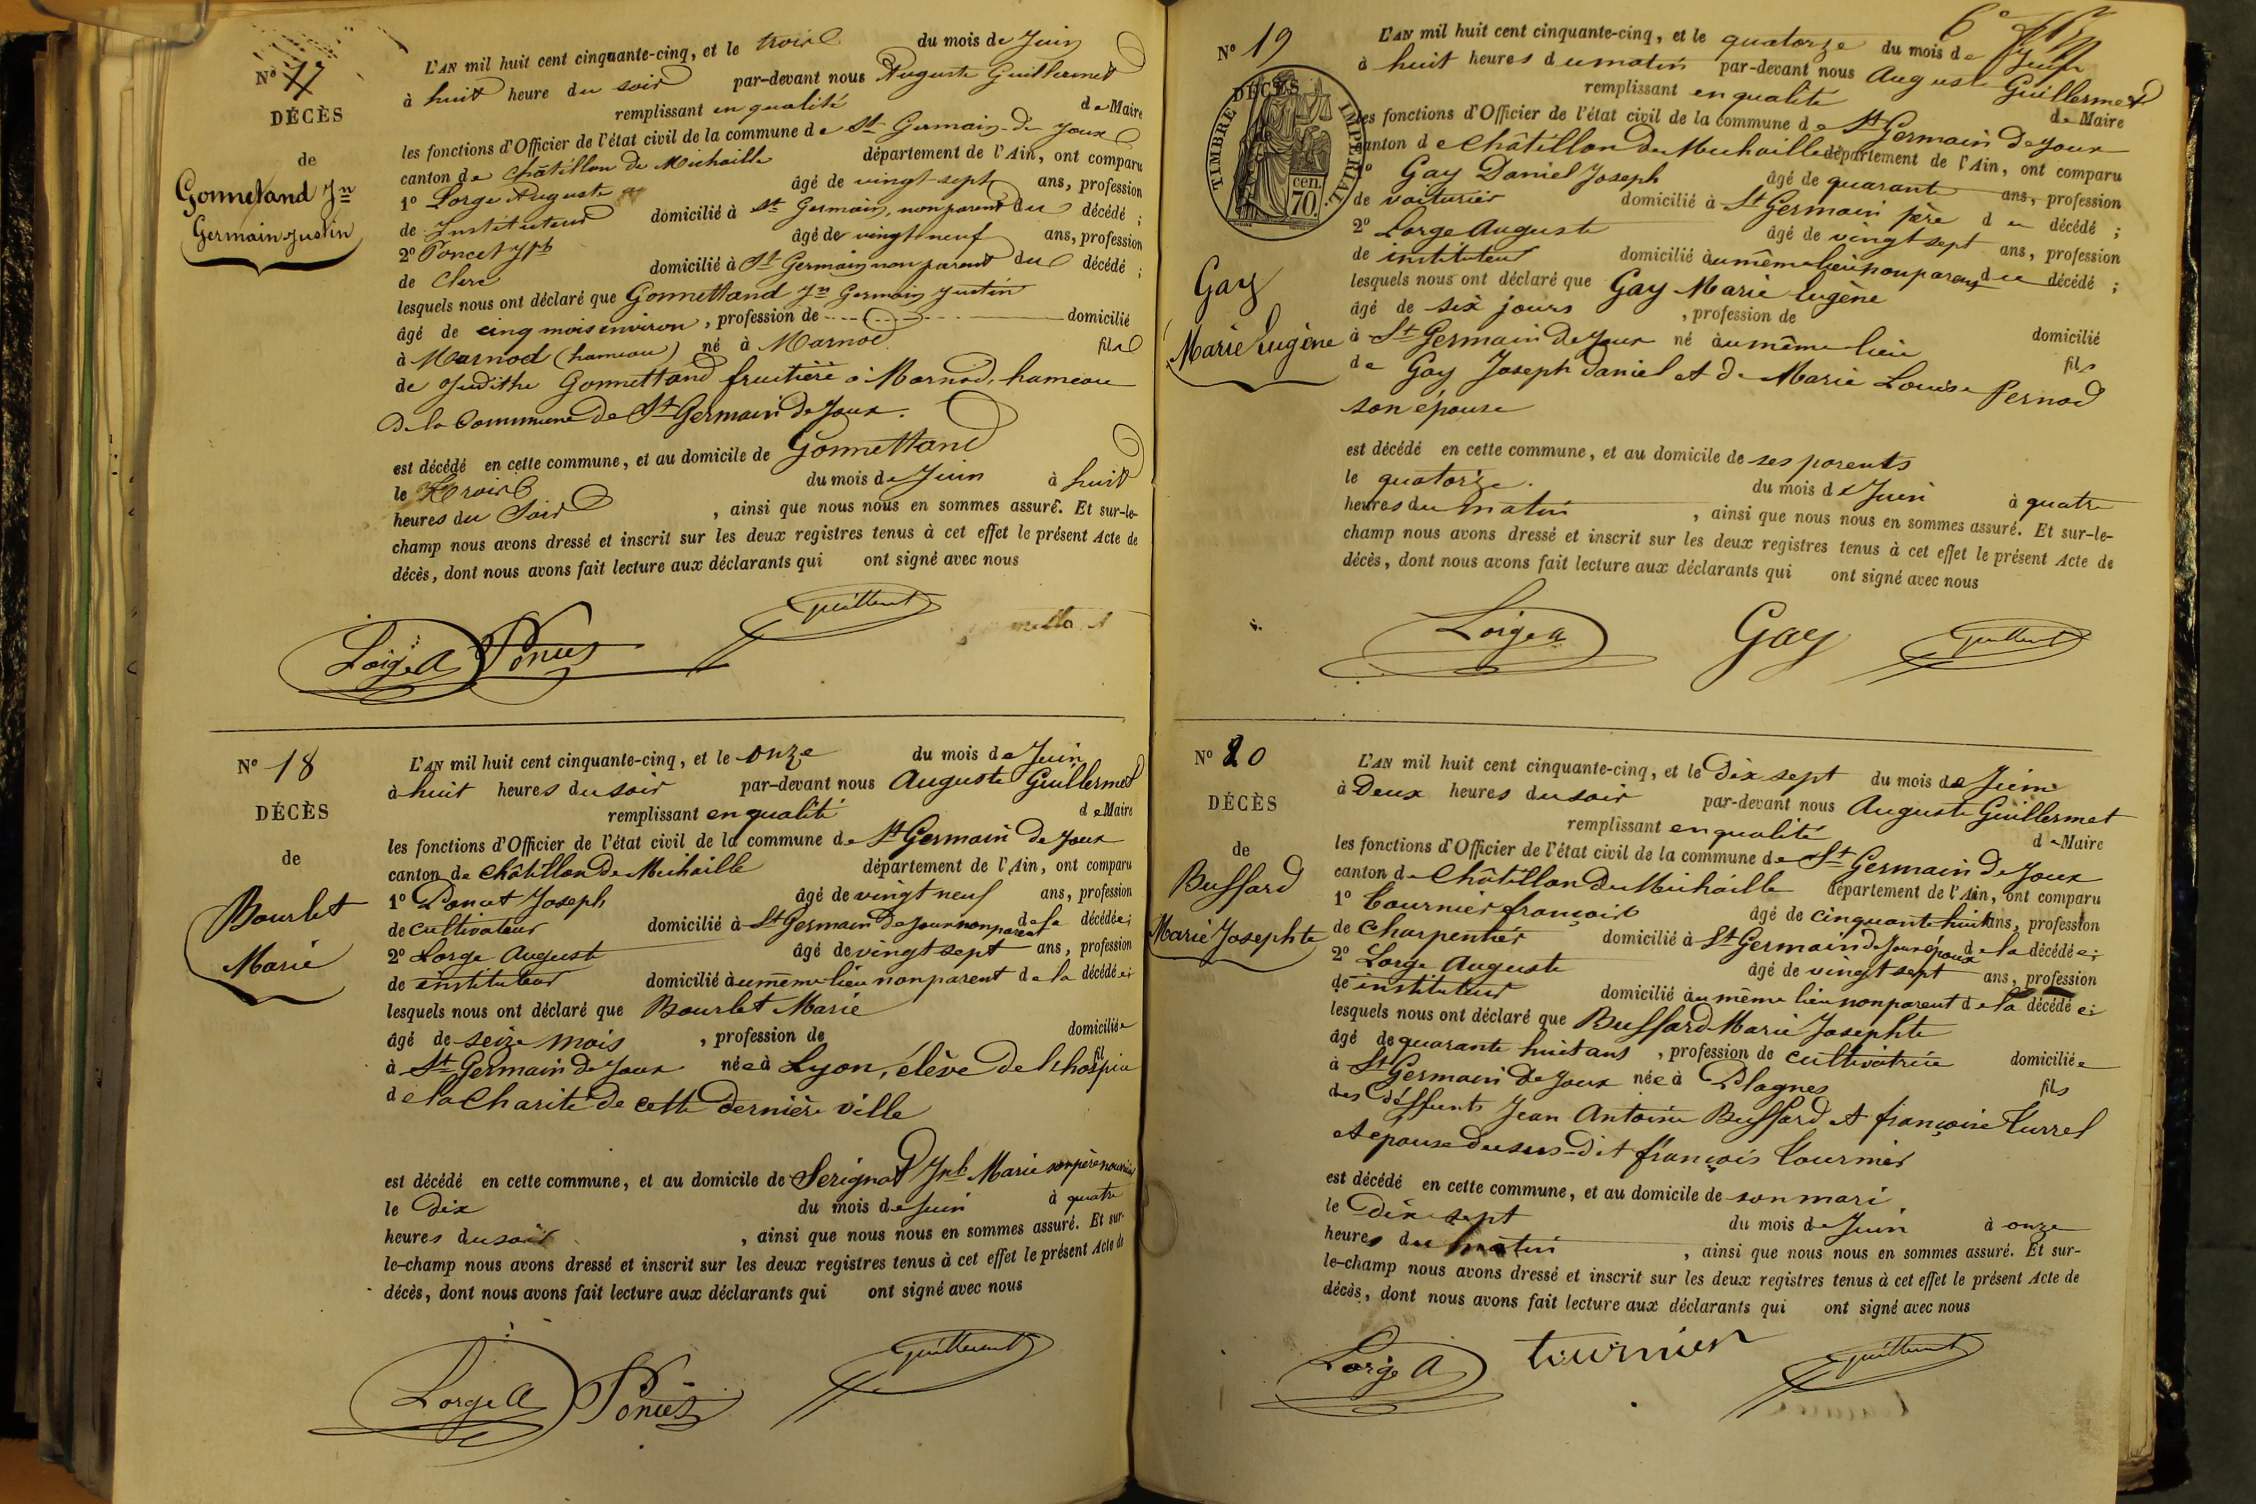 Nº 17
DÉCÈS
de
Gonnettand Jn
Germain Justin
L'AN mil huit cent cinquante-cinq, et le trois du mois de Juin
à huit heure du soir par-devant nous Auguste Guillermet
remplissant en qualité de Maire
les fonctions d'Officier de l'état civil de la commune de St Germain de Joux
canton de Châtillon de Michaille département de l'Ain, ont comparu
1º Lorge Auguste âgé de vingt sept ans, profession
de Instituteur domicilié à St Germain, non parent du décédé ;
2º Poncet Jph âgé de vingt neuf ans, profession
de Clerc domicilié à St Germain non parent du décédé ;
lesquels nous ont déclaré que Gonnettand Jn Germain Justin
âgé de cinq mois environ, profession de domicilié
à Marnod (hameau) né à Marnod fils
de Judithe Gonnettand fruitière à Marnod, hameau
de la Commune de St Germain de Joux.
est décédé en cette commune, et au domicile de Gonnettand
le trois du mois de Juin à huit
heures du Soir , ainsi que nous nous en sommes assuré. Et sur-le-
champ nous avons dressé et inscrit sur les deux registres tenus à cet effet le présent Acte de
décès, dont nous avons fait lecture aux déclarants qui ont signé avec nous
Lorge A Poncet Guillermet
Nº 18
DÉCÈS
de
Bourlet
Marie
L'AN mil huit cent cinquante-cinq, et le onze du mois de Juin
à huit heures du soir par-devant nous Auguste Guillermet
remplissant en qualité de Maire
les fonctions d'Officier de l'état civil de la commune de St Germain de Joux
canton de Châtillon de Michaille département de l'Ain, ont comparu
1º Poncet Joseph âgé de vingt neuf ans, profession
de cultivateur domicilié à St Germain de Joux non parent de la décédée ;
2º Lorge Auguste âgé de vingt sept ans, profession
de instituteur domicilié au même lieu non parent de la décédée ;
lesquels nous ont déclaré que Bourlet Marie
âgé de seize mois , profession de domiciliée
à St Germain de Joux née à Lyon, élève de l'hospice fil
de la Charité de cette dernière ville
est décédé en cette commune, et au domicile de Serignat Jph Marie son père nourricier
le dix du mois de Juin à quatre
heures du soir , ainsi que nous nous en sommes assuré. Et sur-
le-champ nous avons dressé et inscrit sur les deux registres tenus à cet effet le présent Acte de
décès, dont nous avons fait lecture aux déclarants qui ont signé avec nous
Lorge A Poncet Guillermet
Nº 19
DÉCÈS
TIMBRE IMPÉRIAL.
cen.
70.
Gay
Marie Eugène
L'AN mil huit cent cinquante-cinq, et le quatorze du mois de Juin
à huit heures du matin par-devant nous Auguste Guillermet
remplissant en qualité de Maire
les fonctions d'Officier de l'état civil de la commune de St Germain de Joux
canton de Châtillon de Michaille département de l'Ain, ont comparu
1º Gay Daniel Joseph âgé de quarante ans, profession
de voiturier domicilié à St Germain père du décédé ;
2º Lorge Auguste âgé de vingt sept ans, profession
de instituteur domicilié au même lieu non parent du décédé ;
lesquels nous ont déclaré que Gay Marie Eugène
âgé de six jours , profession de domicilié
à St Germain de Joux né au même lieu fils
de Gay Joseph Daniel et de Marie Louise Pernod
son épouse
est décédé en cette commune, et au domicile de ses parents
le quatorze. du mois de Juin à quatre
heures du matin , ainsi que nous nous en sommes assuré. Et sur-le-
champ nous avons dressé et inscrit sur les deux registres tenus à cet effet le présent Acte de
décès, dont nous avons fait lecture aux déclarants qui ont signé avec nous
Lorge A Gay Guillermet
Nº 20
DÉCÈS
de
Buffard
Marie Josephte
L'AN mil huit cent cinquante-cinq, et le dix sept du mois de Juin
à Deux heures du soir par-devant nous Auguste Guillermet
remplissant en qualité de Maire
les fonctions d'Officier de l'état civil de la commune de St Germain de Joux
canton de Châtillon de Michaille département de l'Ain, ont comparu
1º Tournier françois âgé de cinquante huit ans, profession
de Charpentier domicilié à St Germain de Joux époux de la décédée ;
2º Lorge Auguste âgé de vingt sept ans, profession
de instituteur domicilié au même lieu non parent de la décédée ;
lesquels nous ont déclaré que Buffard Marie Josephte
âgé de quarante huit ans , profession de cultivatrice domiciliée
à St Germain de Joux née à Plagnes fils
des déffunts Jean Antoine Buffard et françoise Turrel
et épouse du sus-dit françois Tournier
est décédé en cette commune, et au domicile de son mari
le Dix sept du mois de Juin à onze
heures du matin , ainsi que nous nous en sommes assuré. Et sur-
le-champ nous avons dressé et inscrit sur les deux registres tenus à cet effet le présent Acte de
décès, dont nous avons fait lecture aux déclarants qui ont signé avec nous
Lorge A tournier Guillermet